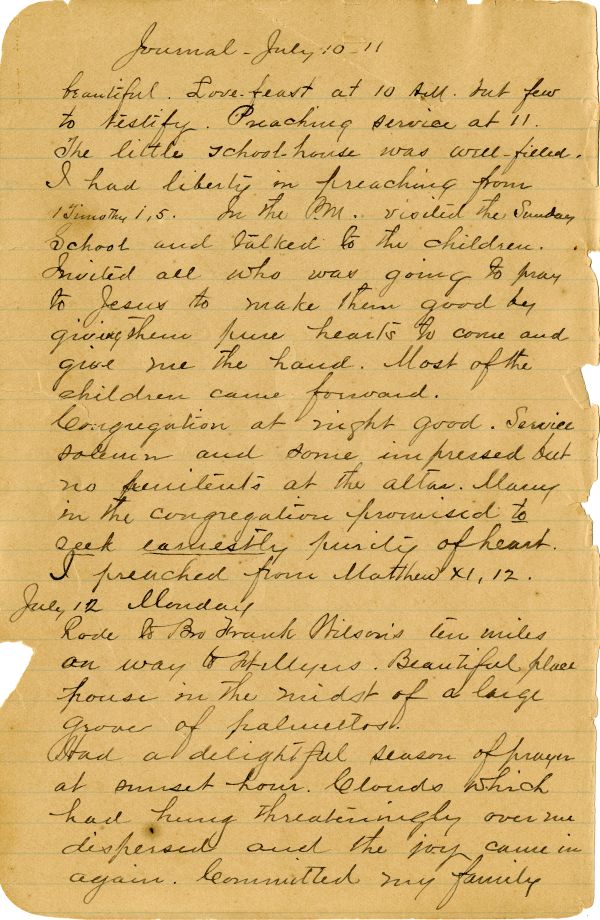 Journal - July 10-11
beautiful. Love-feast at 10 A.M. but few
to testify. Preaching service at 11.
The little school-house was well-filled.
I had liberty in preaching from
1 Timothy 1, 5. In the P.M. visited the Sunday
School and talked to the children.
Invited all who was going to pray
to Jesus to make them good by
giving them pure hearts to come and
give me the hand. Most of the
children came forward.
Congregation at night good. Service
solemn and some impressed but
no penitents at the altar. Many
in the congregation promised to
seek earnestly purity of heart.
I preached from Matthew XI, 12.
July 12 Monday
Rode to Bro Frank Wilson's ten miles
on way to Ft Myers. Beautiful place
house in the midst of a large
grove of palmettos.
Had a delightful season of prayer
at sunset hour. Clouds which
had hung threateningly over me
dispersed and the joy came in
again. Committed my family